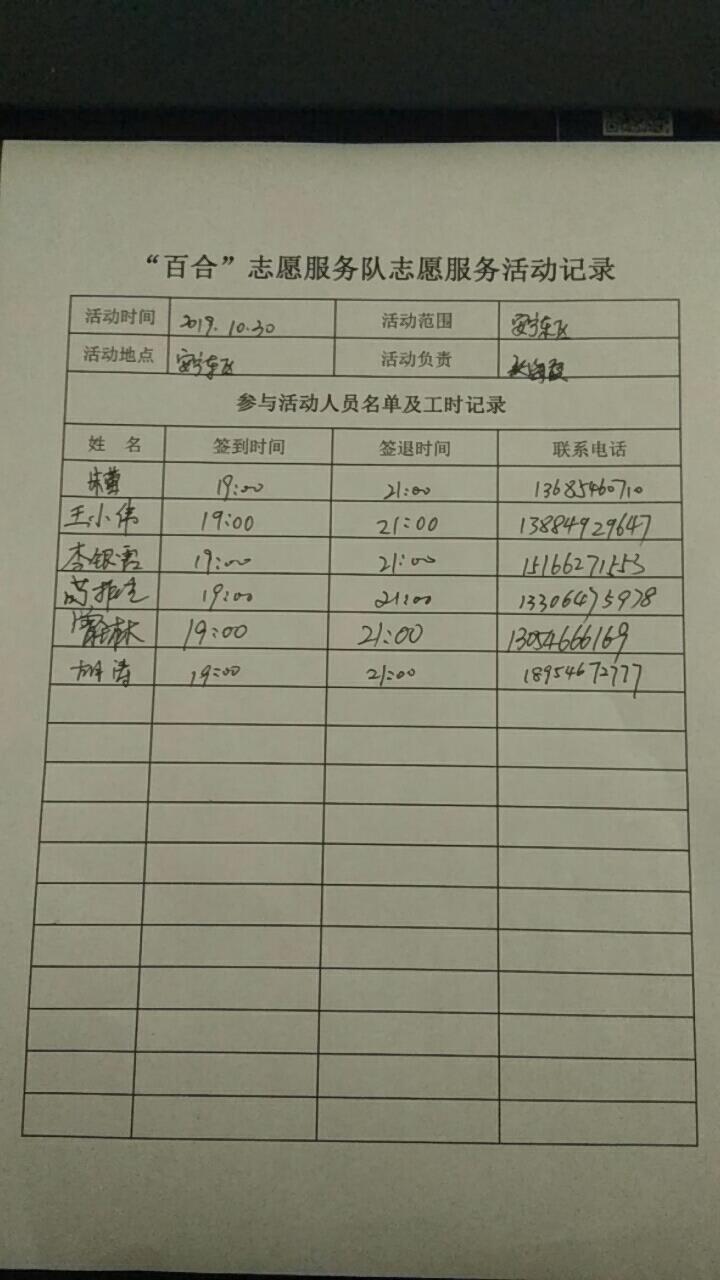 “百合”志愿服务队志愿服务活动记录
活动时间 2019.10.30 活动范围 安宁东区
活动地点 安宁东区 活动负责
参与活动人员名单及工时记录
姓 名 签到时间 签退时间 联系电话
19:00 21:00 13685460710
王小伟 19:00 21:00 13884929647
李银雪 19:00 21:00 15166271553
19:00 21:00 13306475978
19:00 21:00 13054666169
胡涛 19:00 21:00 18954672777